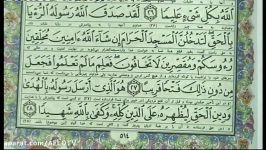 اللَّهُ بِكُلِّ شَيْءٍ عَلِيمًا ٢٦ لَقَدْ صَدَقَ اللَّهُ رَسُولَهُ الرُّءْيَا
بِالْحَقِّ لَتَدْخُلُنَّ الْمَسْجِدَ الْحَرَامَ إِنْ شَاءَ اللَّهُ ءَامِنِينَ مُحَلِّقِينَ
رُءُوسَكُمْ وَمُقَصِّرِينَ لَا تَخَافُونَ فَعَلِمَ مَا لَمْ تَعْلَمُوا فَجَعَلَ
مِنْ دُونِ ذَٰلِكَ فَتْحًا قَرِيبًا ٢٧ هُوَ الَّذِي أَرْسَلَ رَسُولَهُ بِالْهُدَىٰ
وَدِينِ الْحَقِّ لِيُظْهِرَهُ عَلَى الدِّينِ كُلِّهِ وَكَفَىٰ بِاللَّهِ شَهِيدًا ٢٨
٥١٤
aparat.com/AFLOTV